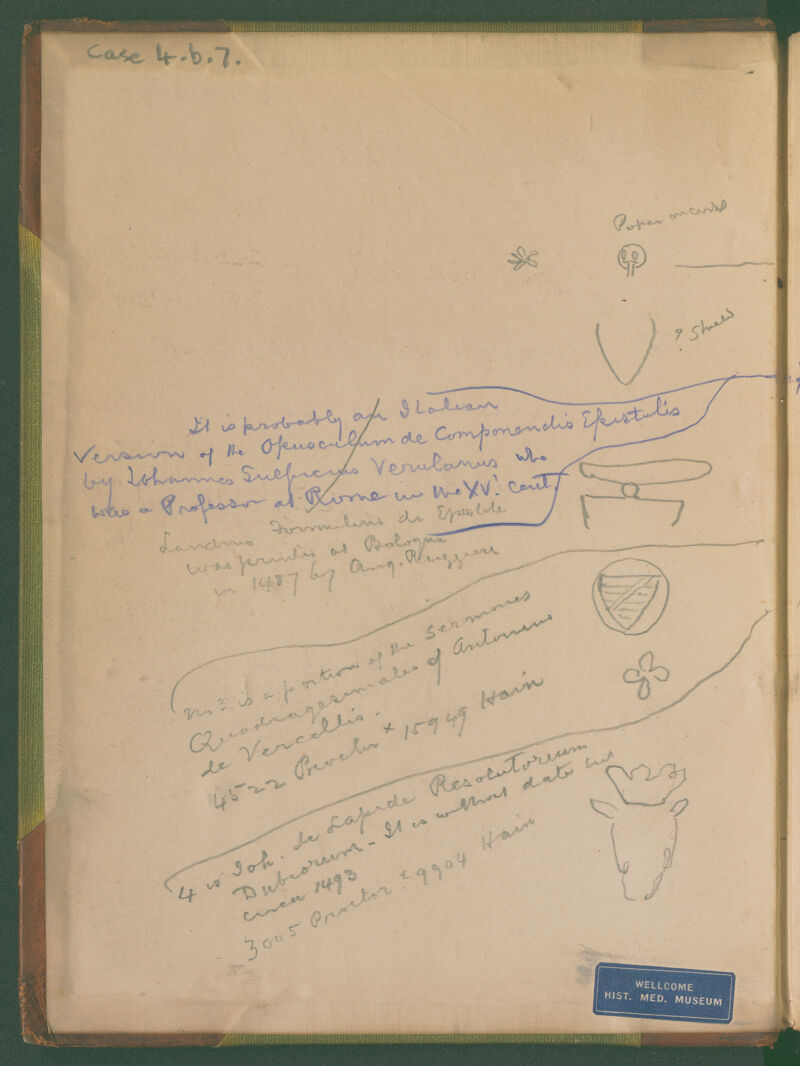 Case 4.b.7.
Paper marked
? Shield
It is probably an Italian
Version of the Opusculum de Componendis Epistulis
by Johannes Sulpicius Verulanus who
was a Professor at Rome in the XV. cent.
Landino Formulario di Epistole
was printed at Bologna
in 1487 by Ang. Ruggieri
No 3 is a portion of the Sermones
Quadragesimales of Antonius
de Vercellis.
4522 Proctor x 15949 Hain
4 is Joh. de Lapide Resolutorium
Dubiorum - It is without date but
circa 1493
3005 Proctor x 9904 Hain
WELLCOME
HIST. MED. MUSEUM